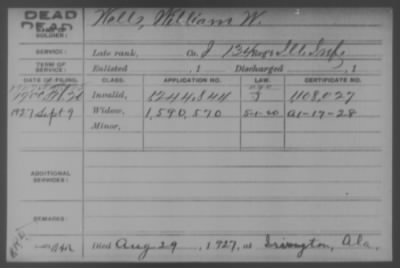 DEAD
DEAD
NAME OF SOLDIER: Wells, William W.
SERVICE: Late rank, Co. I 134 Reg't Ill. Inf.
TERM OF SERVICE: Enlisted , 1 Discharged , 1
DATE OF FILING. CLASS. APPLICATION NO. LAW. CERTIFICATE NO.
Invalid, 1244,844 1108,027
1927 Sept 9 Widow, 1,590,570 5-1-20 A1-17-28
Minor,
ADDITIONAL SERVICES:
REMARKS:
Died Aug 29, 1927, at Irvington, Ala.